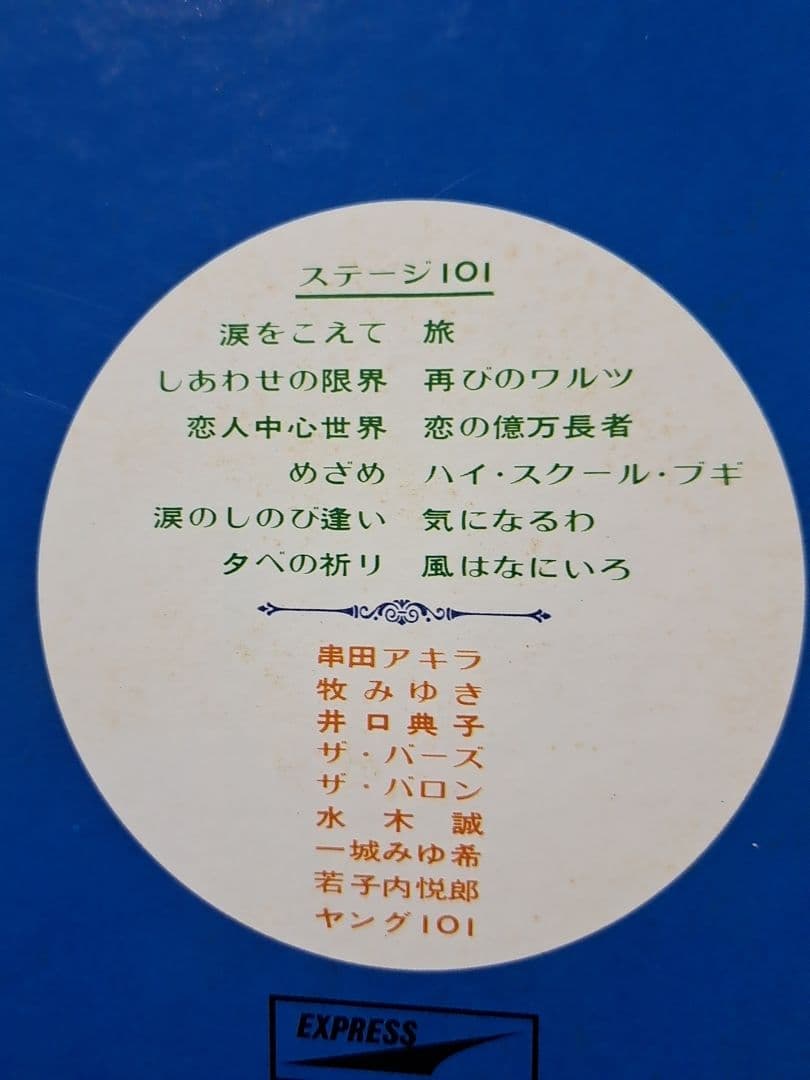 ステージ101
涙をこえて 旅
しあわせの限界 再びのワルツ
恋人中心世界 恋の億万長者
めざめ ハイ・スクール・ブギ
涙のしのび逢い 気になるわ
夕べの祈り 風はなにいろ
串田アキラ
牧みゆき
井口典子
ザ・バーズ
ザ・バロン
水木誠
一城みゆ希
若子内悦郎
ヤング101
EXPRESS